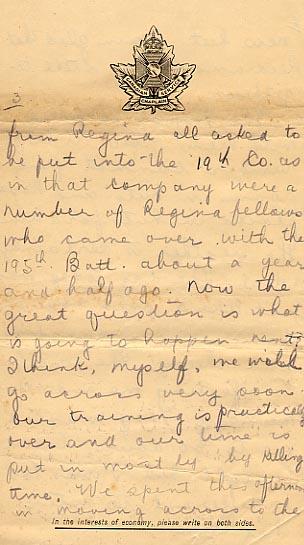 CANADIAN CHAPLAIN SERVICE
3
from Regina all asked to
be put into the 19th Co. as
in that company were a
number of Regina fellows
who came over with the
195th Batt. about a year
and half ago. Now the
great question is what
is going to happen next?
I think, myself, we will
go across very soon
our training is practically
over and our time is
put in mostly by killing
time. We spent this afternoon
in moving across to the
In the interests of economy, please write on both sides.